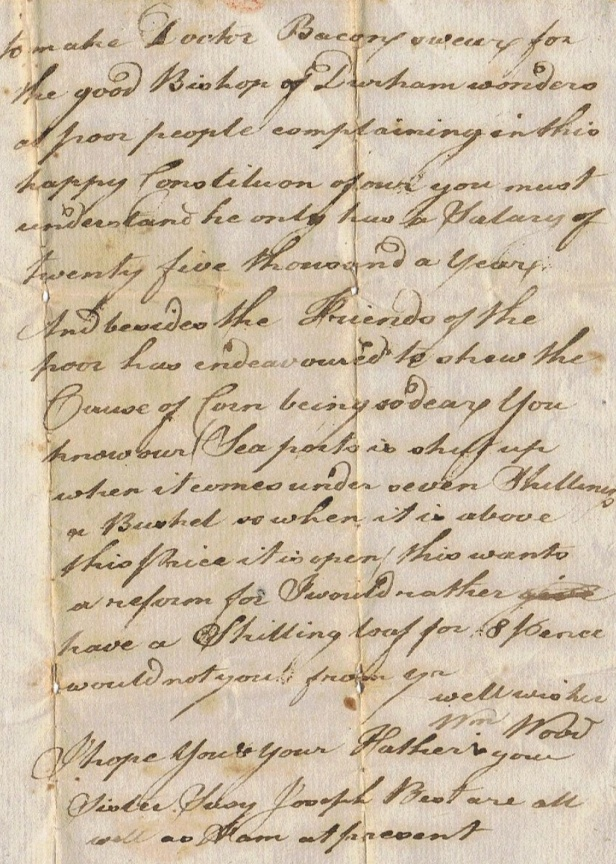 to make Doctor Bacony swear for
the good Bishop of Durham wonders
at poor people complaining in this
happy Constituon of our you must
understand he only has a Salary of
twenty five thousand a year
And besides the Friends of the
poor has endeavoured to shew the
Cause of Corn being so dear You
know our Sea ports is shut up
when it comes under seven Shillings
a Bushel so when it is above
this Price it is open this wants
a reform for I would rather give
have a Shilling loaf for 8 Pence
would not you from yr
well wisher
Wm Wood
I hope You & Your Father & your
Sister Susy Joseph Best are all
well as I am at present